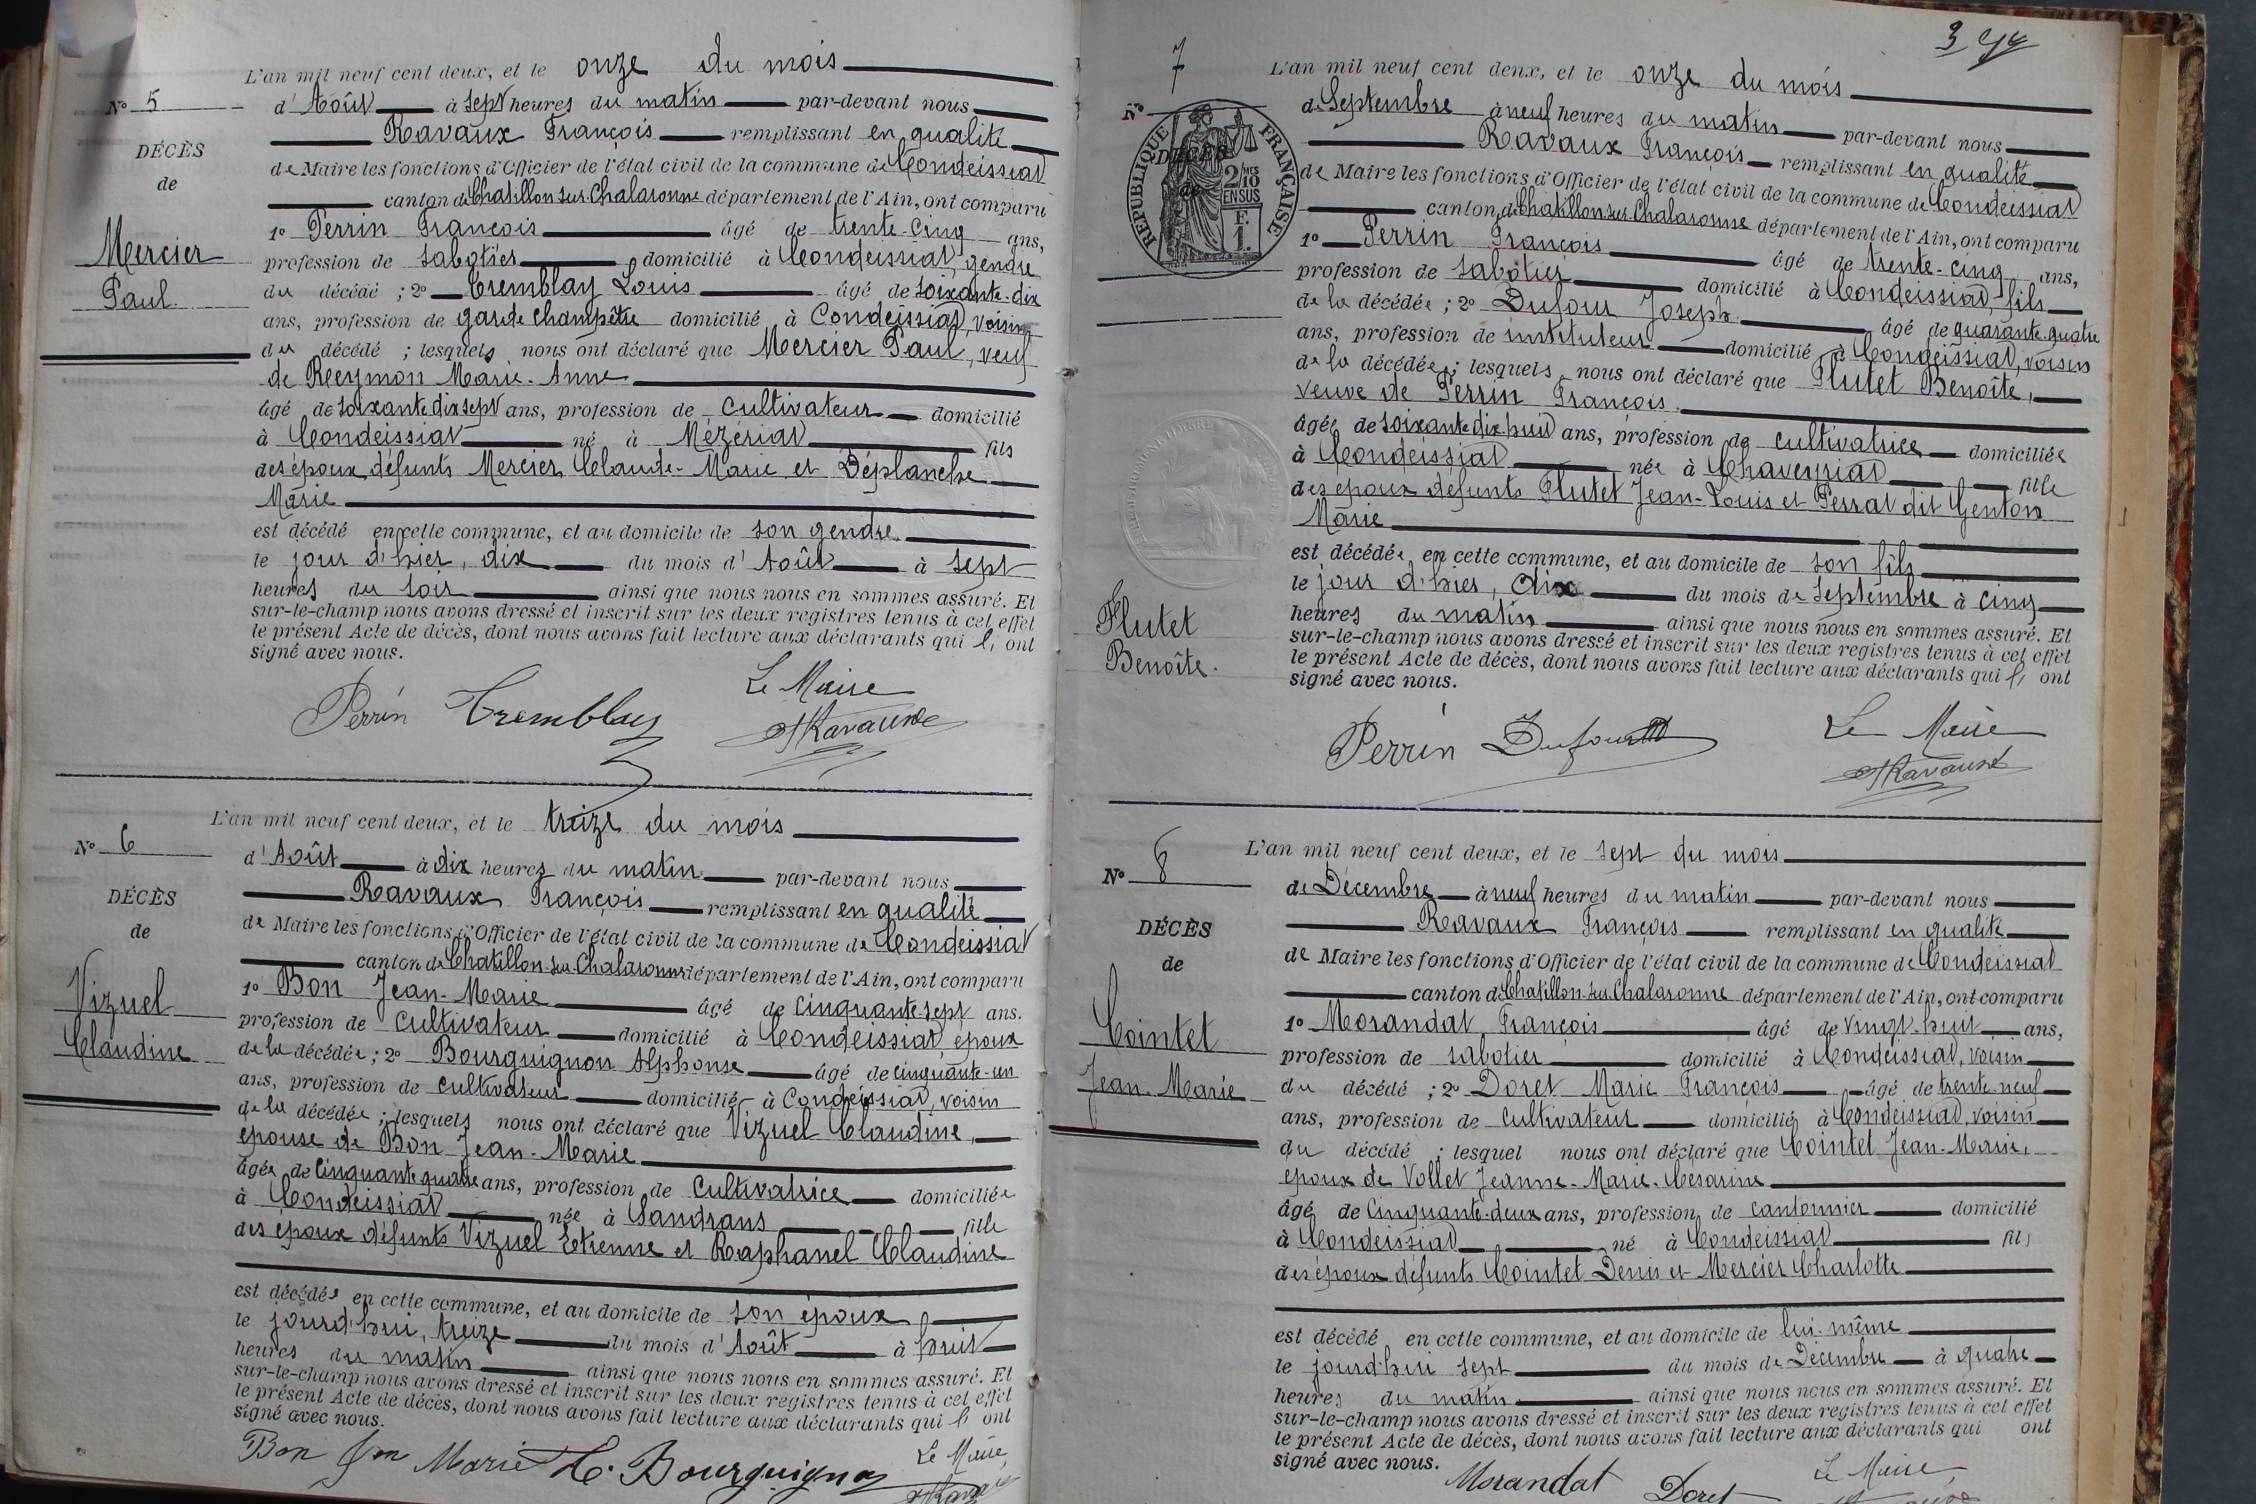 L'an mil neuf cent deux, et le onze du mois
N° 5
d'Août à sept heures du matin par-devant nous
Ravaux François remplissant en qualité
DÉCÈS
de
de Maire les fonctions d'Officier de l'état civil de la commune de Condeissiat
canton de Chatillon-sur-Chalaronne département de l'Ain, ont comparu
Mercier
Paul
1° Perrin François âgé de trente-cinq ans,
profession de sabotier domicilié à Condeissiat, gendre
du décédé ; 2° Tremblay Louis âgé de soixante-dix
ans, profession de garde champêtre domicilié à Condeissiat, voisin
du décédé ; lesquels nous ont déclaré que Mercier Paul, veuf
de Reymon Marie-Anne
âgé de soixante dix sept ans, profession de cultivateur domicilié
à Condeissiat né à Mézériat fils
des époux défunts Mercier Claude-Marie et Déplanche
Marie
est décédé en cette commune, et au domicile de son gendre
le jour d'hier, dix du mois d'Août à sept
heures du soir ainsi que nous nous en sommes assuré. Et
sur-le-champ nous avons dressé et inscrit sur les deux registres tenus à cet effet
le présent Acte de décès, dont nous avons fait lecture aux déclarants qui l' ont
signé avec nous.
Perrin Tremblay Le Maire
Ravaux
L'an mil neuf cent deux, et le treize du mois
N° 6
d'Août à dix heures du matin par-devant nous
Ravaux François remplissant en qualité
DÉCÈS
de
de Maire les fonctions d'Officier de l'état civil de la commune de Condeissiat
canton de Chatillon-sur-Chalaronne département de l'Ain, ont comparu
Vizuel
Claudine
1° Bon Jean-Marie âgé de cinquante-sept ans.
profession de cultivateur domicilié à Condeissiat, époux
de la décédée ; 2° Bourguignon Alphonse âgé de cinquante-un
ans, profession de cultivateur domicilié à Condeissiat, voisin
de la décédée ; lesquels nous ont déclaré que Vizuel Claudine,
épouse de Bon Jean-Marie
âgée de cinquante quatre ans, profession de cultivatrice domiciliée
à Condeissiat née à Sandrans fille
des époux défunts Vizuel Etienne et Raphanel Claudine
est décédée en cette commune, et au domicile de son époux
le jourd'hui, treize du mois d'Août à huit
heures du matin ainsi que nous nous en sommes assuré. Et
sur-le-champ nous avons dressé et inscrit sur les deux registres tenus à cet effet
le présent Acte de décès, dont nous avons fait lecture aux déclarants qui l' ont
signé avec nous.
Bon Jean Marie Bourguignon Le Maire,
Ravaux
3
7
L'an mil neuf cent deux, et le onze du mois
N°
de Septembre à neuf heures du matin par-devant nous
Ravaux François remplissant en qualité
DÉCÈS
de
RÉPUBLIQUE FRANÇAISE
2/10 EN SUS
F. 1.
de Maire les fonctions d'Officier de l'état civil de la commune de Condeissiat
canton de Chatillon-sur-Chalaronne département de l'Ain, ont comparu
1° Perrin François âgé de trente-cinq ans,
profession de sabotier domicilié à Condeissiat, fils
de la décédée ; 2° Dufour Joseph âgé de quarante-quatre
ans, profession de instituteur domicilié à Condeissiat, voisin
de la décédée ; lesquels nous ont déclaré que Flutet Benoîte,
veuve de Perrin François.
âgée de soixante dix-huit ans, profession de cultivatrice domiciliée
à Condeissiat née à Chaveyriat fille
des époux défunts Flutet Jean-Louis et Perrat dit Genton
Marie
Flutet
Benoîte.
est décédée en cette commune, et au domicile de son fils
le jour d'hier, dix du mois de Septembre à cinq
heures du matin ainsi que nous nous en sommes assuré. Et
sur-le-champ nous avons dressé et inscrit sur les deux registres tenus à cet effet
le présent Acte de décès, dont nous avons fait lecture aux déclarants qui l' ont
signé avec nous.
Perrin Dufour Le Maire
Ravaux
L'an mil neuf cent deux, et le sept du mois
N° 8
de Décembre à neuf heures du matin par-devant nous
Ravaux François remplissant en qualité
DÉCÈS
de
de Maire les fonctions d'Officier de l'état civil de la commune de Condeissiat
canton de Chatillon-sur-Chalaronne département de l'Ain, ont comparu
Cointet
Jean-Marie
1° Morandat François âgé de vingt-huit ans,
profession de sabotier domicilié à Condeissiat, voisin
du décédé ; 2° Doret Marie François âgé de trente-neuf
ans, profession de cultivateur domicilié à Condeissiat, voisin
du décédé ; lesquel nous ont déclaré que Cointet Jean-Marie,
époux de Vollet Jeanne-Marie-Césarine
âgé de cinquante-deux ans, profession de cantonnier domicilié
à Condeissiat né à Condeissiat fils
des époux défunts Cointet Denis et Mercier Charlotte
est décédé en cette commune, et au domicile de lui-même
le jourd'hui sept du mois de Décembre à quatre
heures du matin ainsi que nous nous en sommes assuré. Et
sur-le-champ nous avons dressé et inscrit sur les deux registres tenus à cet effet
le présent Acte de décès, dont nous avons fait lecture aux déclarants qui ont
signé avec nous.
Morandat Doret Le Maire,